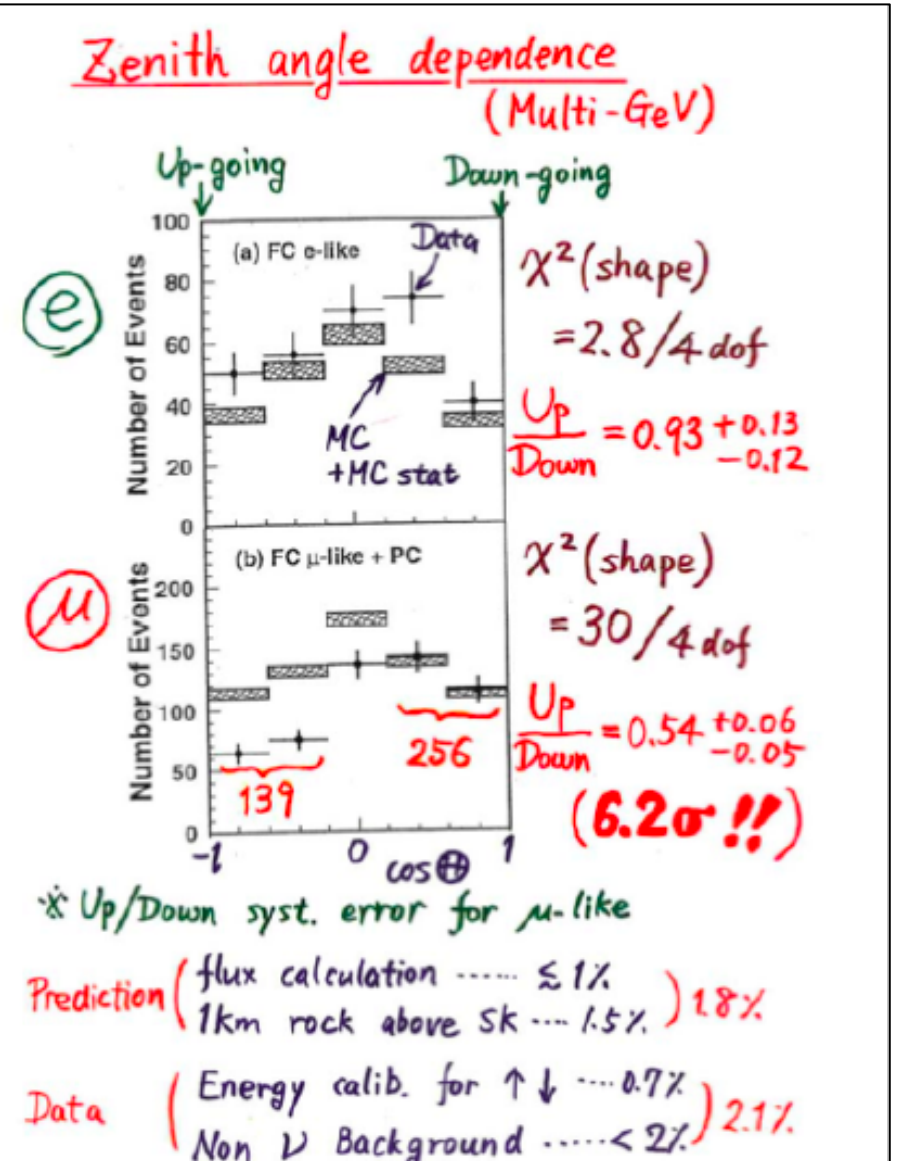 Zenith angle dependence
(Multi-GeV)
Up-going
Down-going
100
80
60
40
20
0
Number of Events
(a) FC e-like
Data
MC
+MC stat
e
χ²(shape)
=2.8/4 dof
Up/Down = 0.93 +0.13 -0.12
200
150
100
50
0
Number of Events
(b) FC μ-like + PC
139
256
μ
χ²(shape)
=30/4 dof
Up/Down = 0.54 +0.06 -0.05
(6.2σ!!)
-1 0 1
cosΘ
※ Up/Down syst. error for μ-like
Prediction ( flux calculation ...... ≲ 1%
1km rock above SK .... 1.5% ) 1.8%
Data ( Energy calib. for ↑ ↓ .... 0.7%
Non ν Background ..... < 2% ) 2.1%